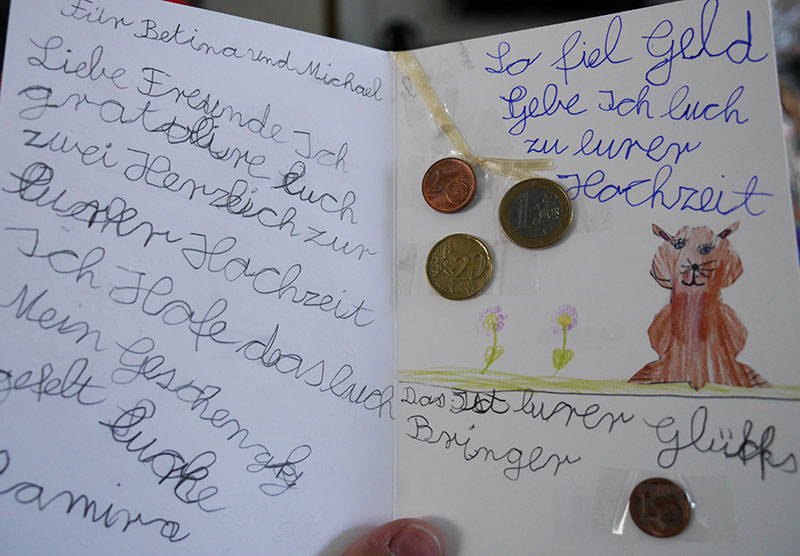 Für Betina und Michael
Liebe Freunde Ich
gratolire Euch
zwei Herzlich zur
Eurer Hochzeit
Ich Hofe das Euch
Mein Geschengk
gefelt Eurke
Ramira
So fiel Geld
Gebe Ich Euch
zu Eurer
Hochzeit
2
1
20
Das Ist Eurer Glüks
Bringer